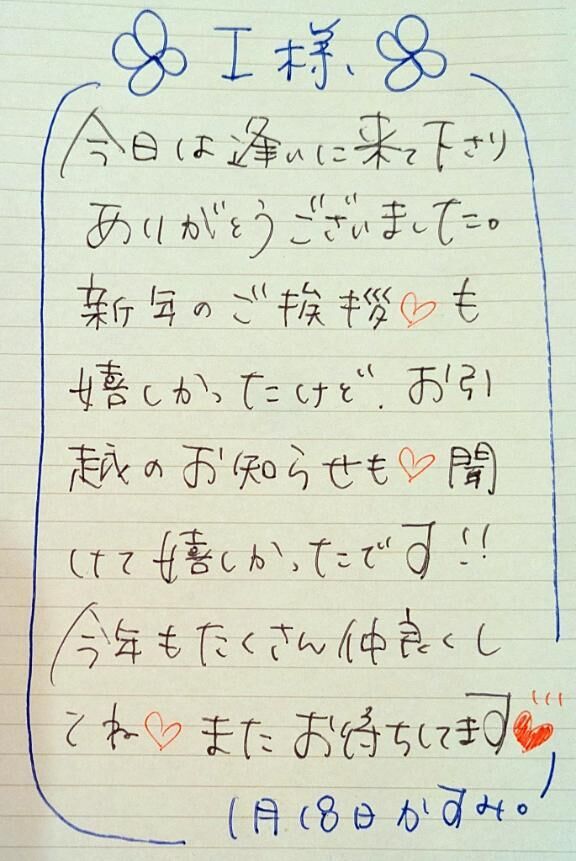 I様、
今日は逢いに来て下さり
ありがとうございました。
新年のご挨拶♡も
嬉しかったけど、お引
越のお知らせも♡聞
けて嬉しかったです!!
今年もたくさん仲良くし
てね♡またお待ちしてます♥
1月18日かすみ。